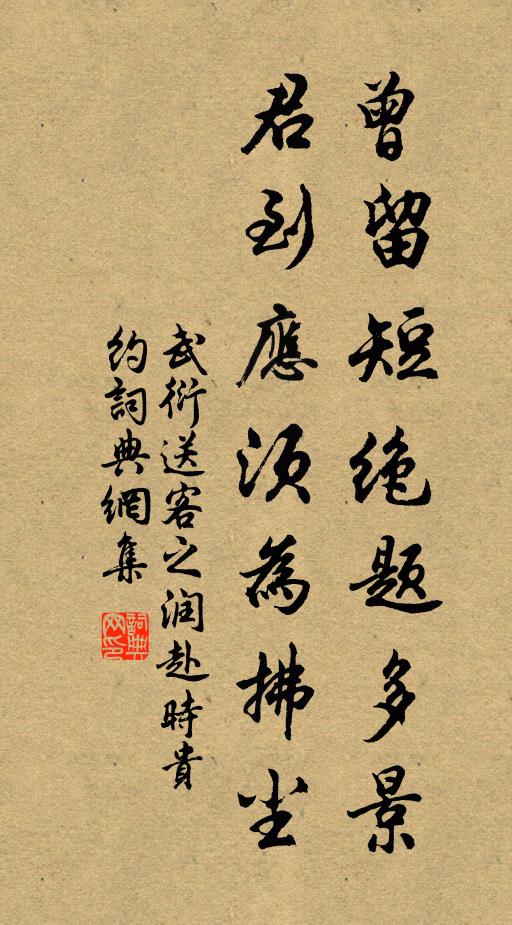 曾留短绝题多景
君到應须為拂尘
武衍送客之润赴時貴
约詞典網集
詞典網印